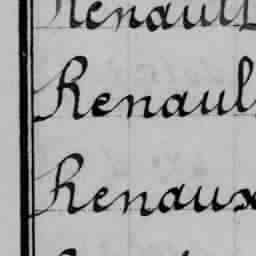 Renault
Renaul
Renaux